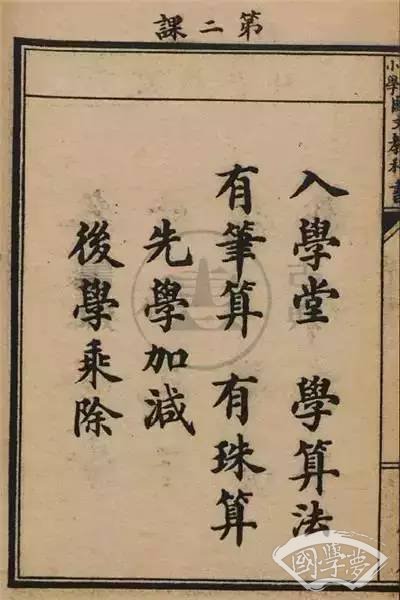 第二課
小學國文教科書
入學堂 學算法
有筆算 有珠算
先學加減
後學乘除
國學夢